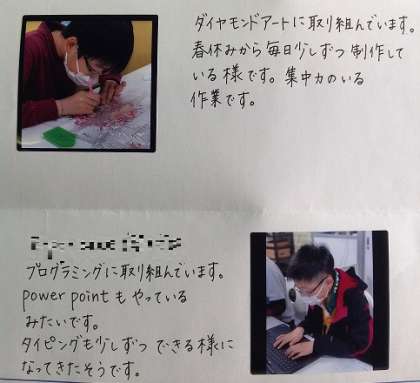 ダイヤモンドアートに取り組んでいます。
春休みから毎日少しずつ制作して
いる様です。集中力のいる
作業です。
プログラミングに取り組んでいます。
power pointもやっている
みたいです。
タイピングも少しずつできる様に
なってきたそうです。